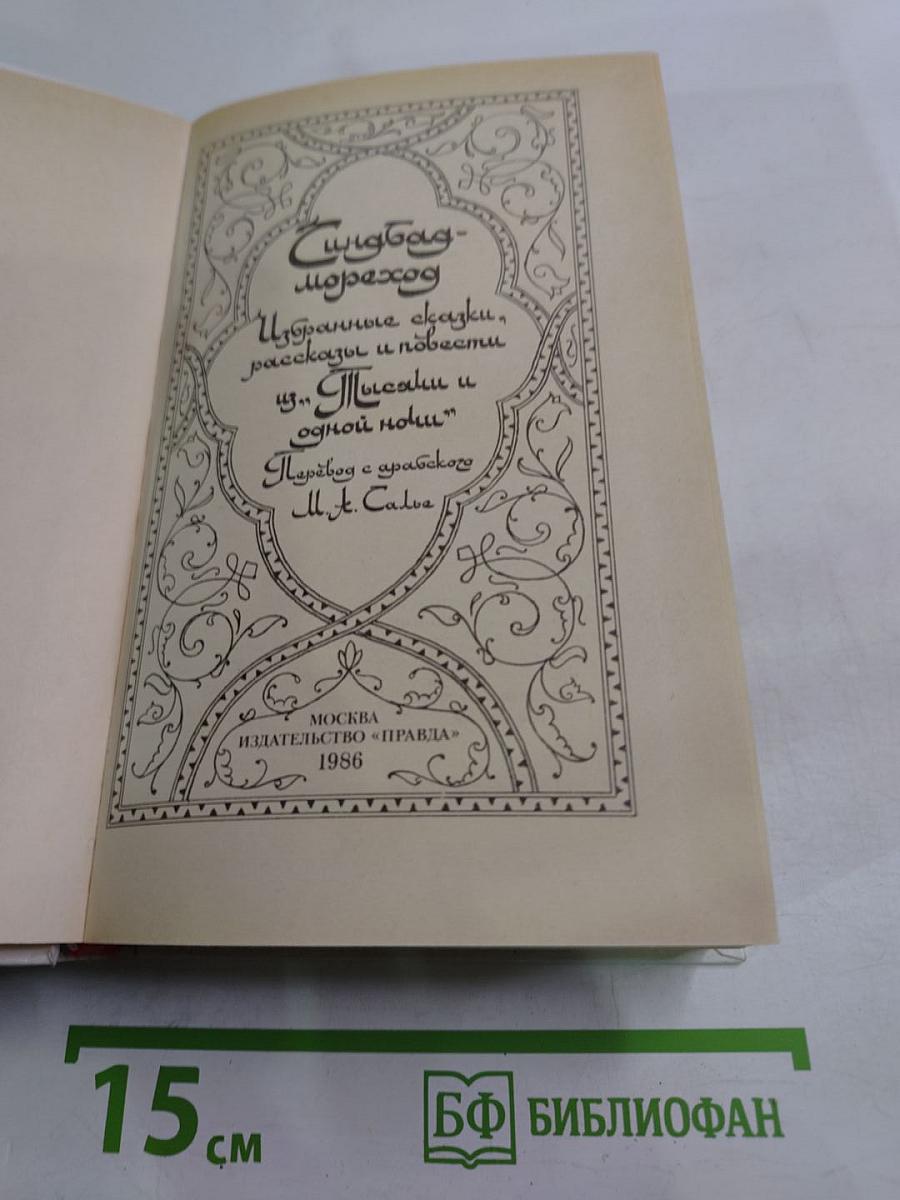 Синдбад-
мореход
Избранные сказки,
рассказы и повести
из „Тысячи и
одной ночи“
Перевод с арабского
М. А. Салье
МОСКВА
ИЗДАТЕЛЬСТВО «ПРАВДА»
1986
15 см
БФ БИБЛИОФАН